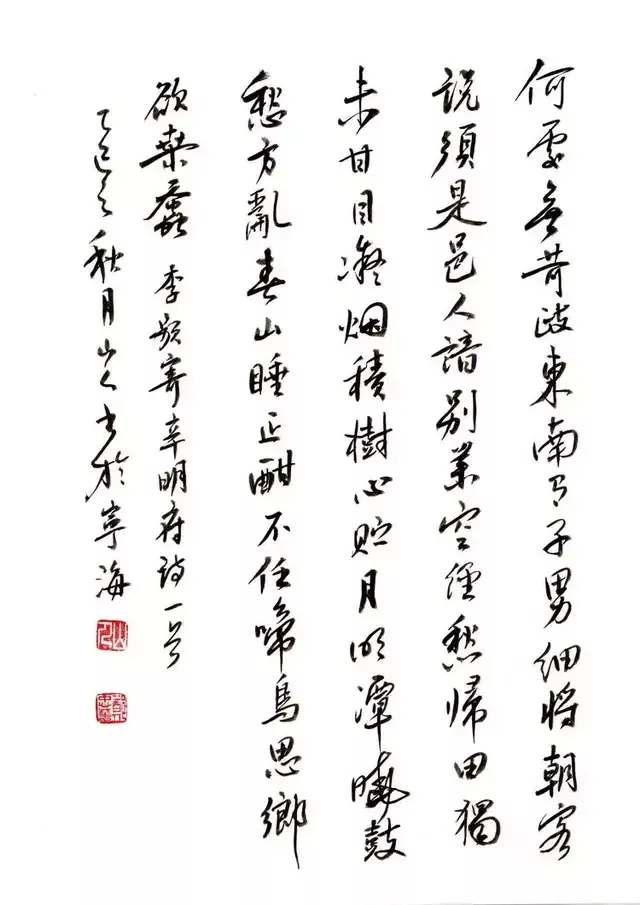 何處無苛政東南有子男細將朝客
說須是邑人諳別業空經愁歸田獨
未甘目凝烟積樹心貯月明潭曉鼓
愁方亂春山睡正酣不任啼鳥思鄉
欲桑蠶 李頻寄辛明府詩一首
乙巳之秋月山人書於寧海